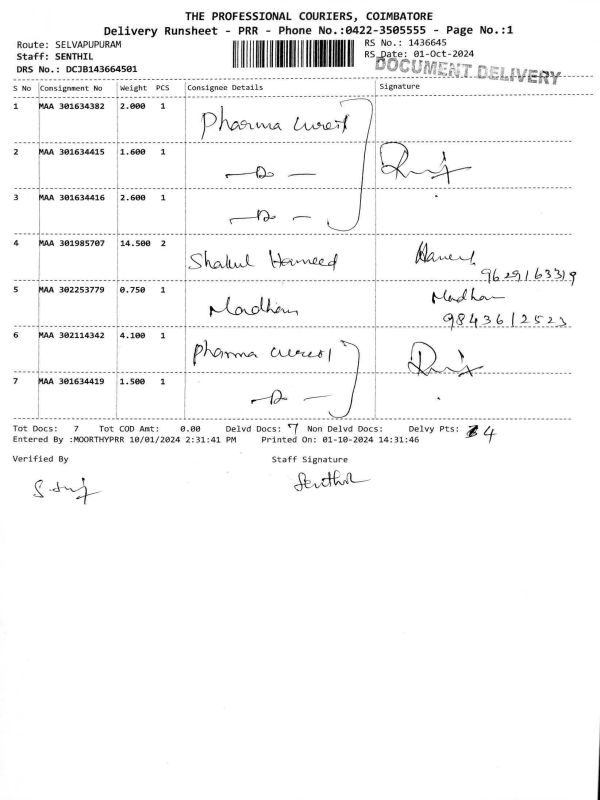 THE PROFESSIONAL COURIERS, COIMBATORE
Delivery Runsheet - PRR - Phone No.:0422-3505555 - Page No.:1
Route: SELVAPUPURAM RS No.: 1436645
Staff: SENTHIL RS Date: 01-Oct-2024
DRS No.: DCJB143664501 DOCUMENT DELIVERY
S No Consignment No Weight PCS Consignee Details Signature
1 MAA 301634382 2.000 1 Pharma
2 MAA 301634415 1.600 1 —Do—
3 MAA 301634416 2.600 1 —Do—
4 MAA 301985707 14.500 2 Shakul Hameed
9629163319
5 MAA 302253779 0.750 1 Madhan Madhan
9843612523
6 MAA 302114342 4.100 1 Pharma
7 MAA 301634419 1.500 1 —Do—
Tot Docs: 7 Tot COD Amt: 0.00 Delvd Docs: 7 Non Delvd Docs: Delvy Pts: 4
Entered By :MOORTHYPRR 10/01/2024 2:31:41 PM Printed On: 01-10-2024 14:31:46
Verified By Staff Signature
Senthil